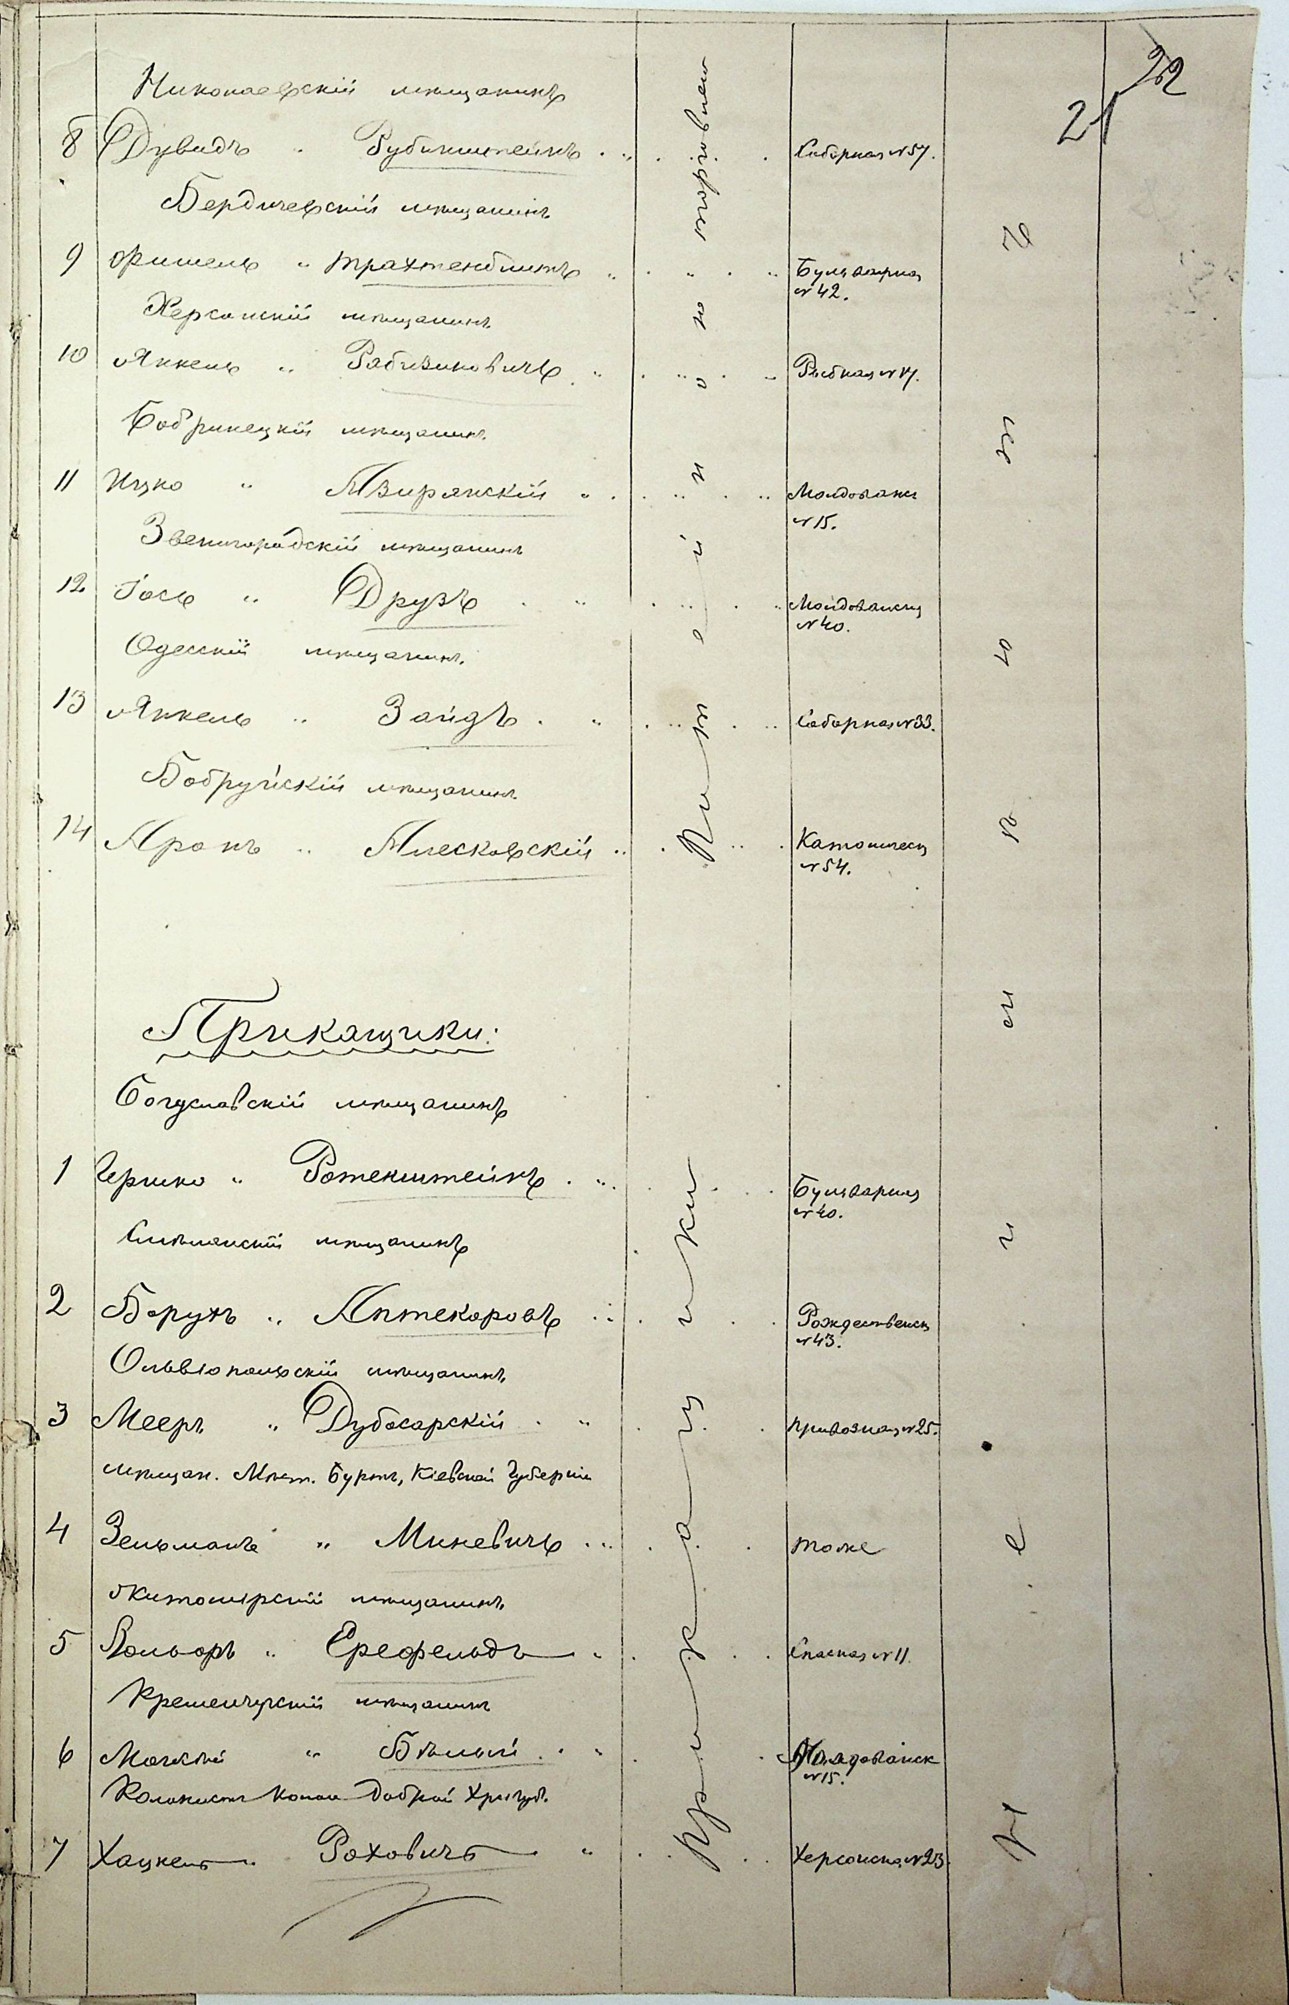 22
21
Николаевскій мѣщанинъ
8 Дувидъ „ Рубинштейнъ „ „ Соборная №57.
Бердичевскій мѣщанинъ
9 Фишель „ Трахтенблитъ „ „ „ Бульварная
№42.
Херсонскій мѣщанинъ
10 Янкель „ Рабизиновичъ „ „ „ Рыбная №17.
Бобринецкій мѣщанинъ
11 Ицко „ Мзиранскій „ „ „ Молдованск
№15.
Звенигородскій мѣщанинъ
12 Іось „ Друзъ „ „ „ Молдованск
№40.
Одесскій мѣщанинъ
13 Янкель „ Зайдъ „ „ „ Соборная №33.
Бобруйскій мѣщанинъ
14 Аронъ „ Млесковскій „ „ Католическ
№54.
Питейною торговлею
Прикащики:
Богуславскій мѣщанинъ
1 Гершко „ Ротенштейнъ „ Бульварная
№40.
Смѣлянскій мѣщанинъ
2 Борухъ „ Аптекаровъ „ Рождественск
№43.
Ольвіопольскій мѣщанинъ
3 Мееръ „ Дубосарскій „ Привозная №25.
мѣщан. Мѣст. Буртъ, Кіевской Губерніи
4 Зельманъ „ Миневичъ „ тоже
Житомірскій мѣщанинъ
5 „ „ Спасская №11.
Кременчугскій мѣщанинъ
6 „ Бѣлый „ Молдованск
№15.
Колонистъ Колон Доброй Хер. губ.
7 Хацкель „ Раховичъ „ Херсонская №23.
Прикащики
Не и